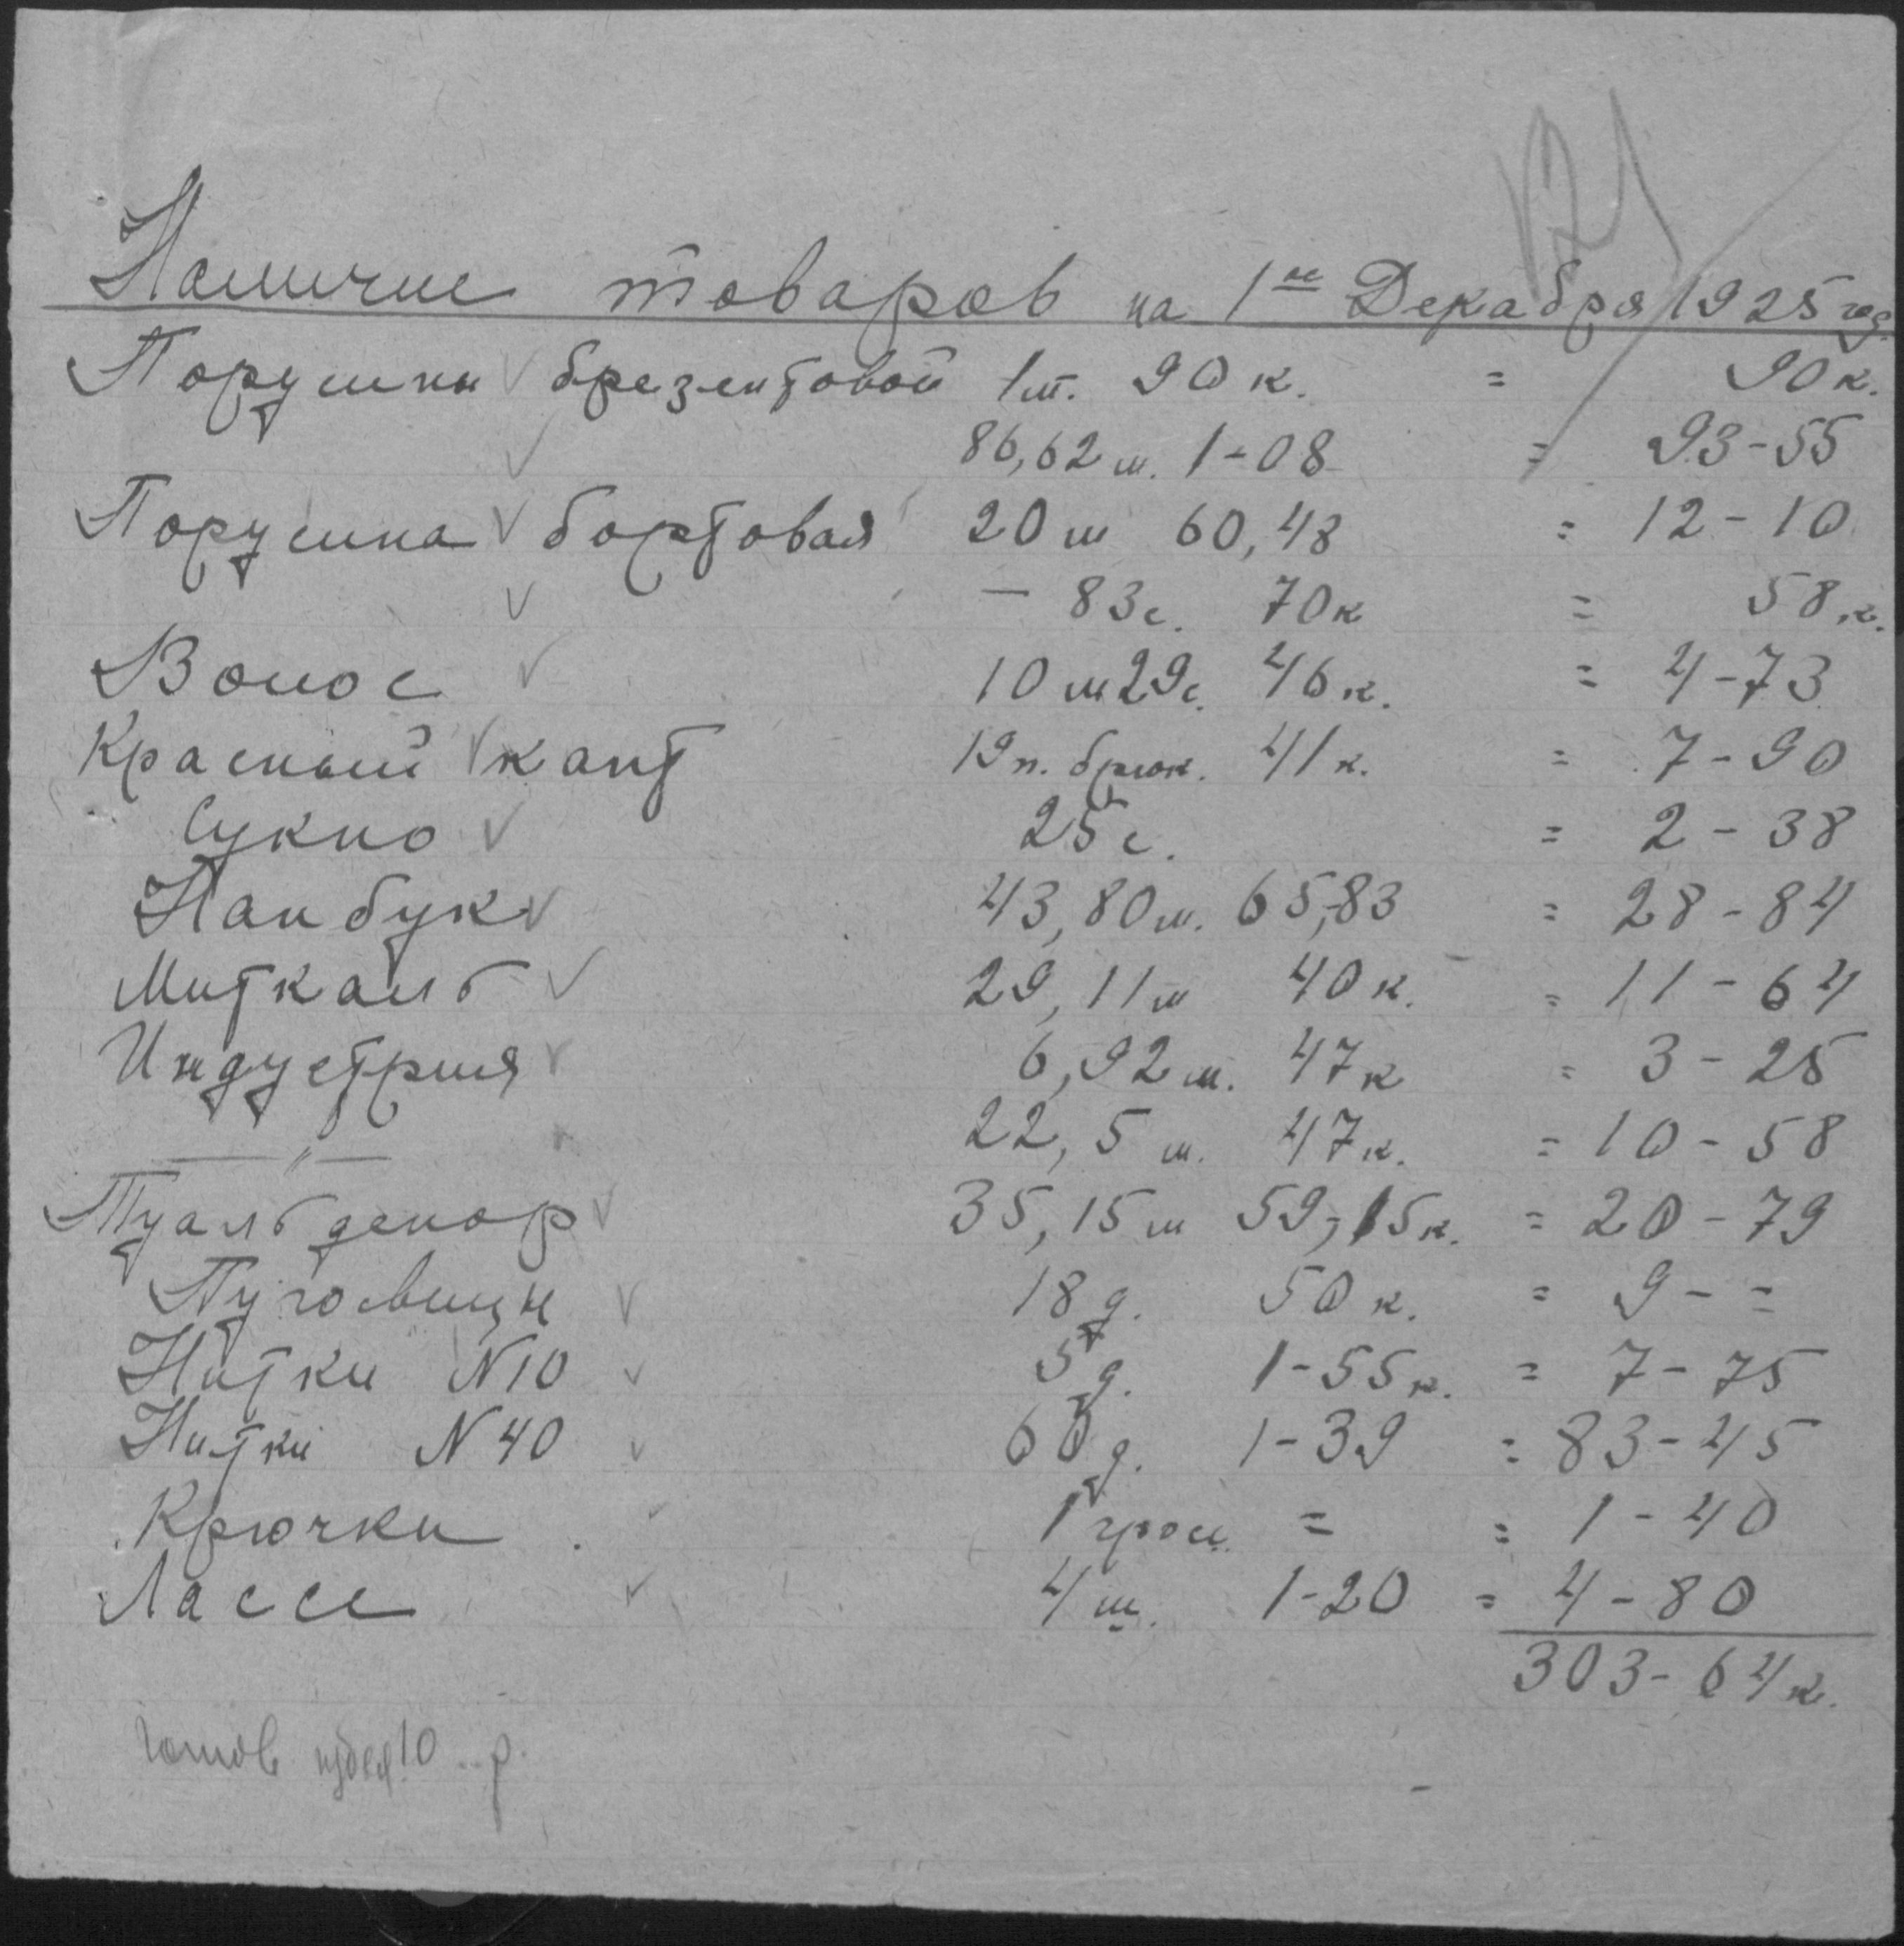 Наличие товаров на 1ое Декабря 1925 год.
Порушны брезентовой 1 м. 90 к. = 90 к.
86,62 м. 1-08 = 93-55
Порушна бортовая 20 м 60,48 = 12-10
— 83 с. 70 к = 58 к.
Волос 10 м 29 с. 46 к. = 4-73
Красный кант 19 п. брюк. 41 к. = 7-90
Сукно 25 с. = 2-38
Нанбук 43,80 м. 65,83 = 28-84
Миткаль 29,11 м 40 к. = 11-64
Индустрия 6,92 м. 47 к = 3-25
—"— 22,5 м. 47 к. = 10-58
Туальденор 35,15 м 59,15 к. = 20-79
Пуговицы 18 д. 50 к. = 9-=
Нитки N10 5 д. 1-55 к. = 7-75
Нитки N40 60 д. 1-39 = 83-45
Крючки 1 грос. = = 1-40
Лассе 4 м. 1-20 = 4-80
303-64 к.
10 р.